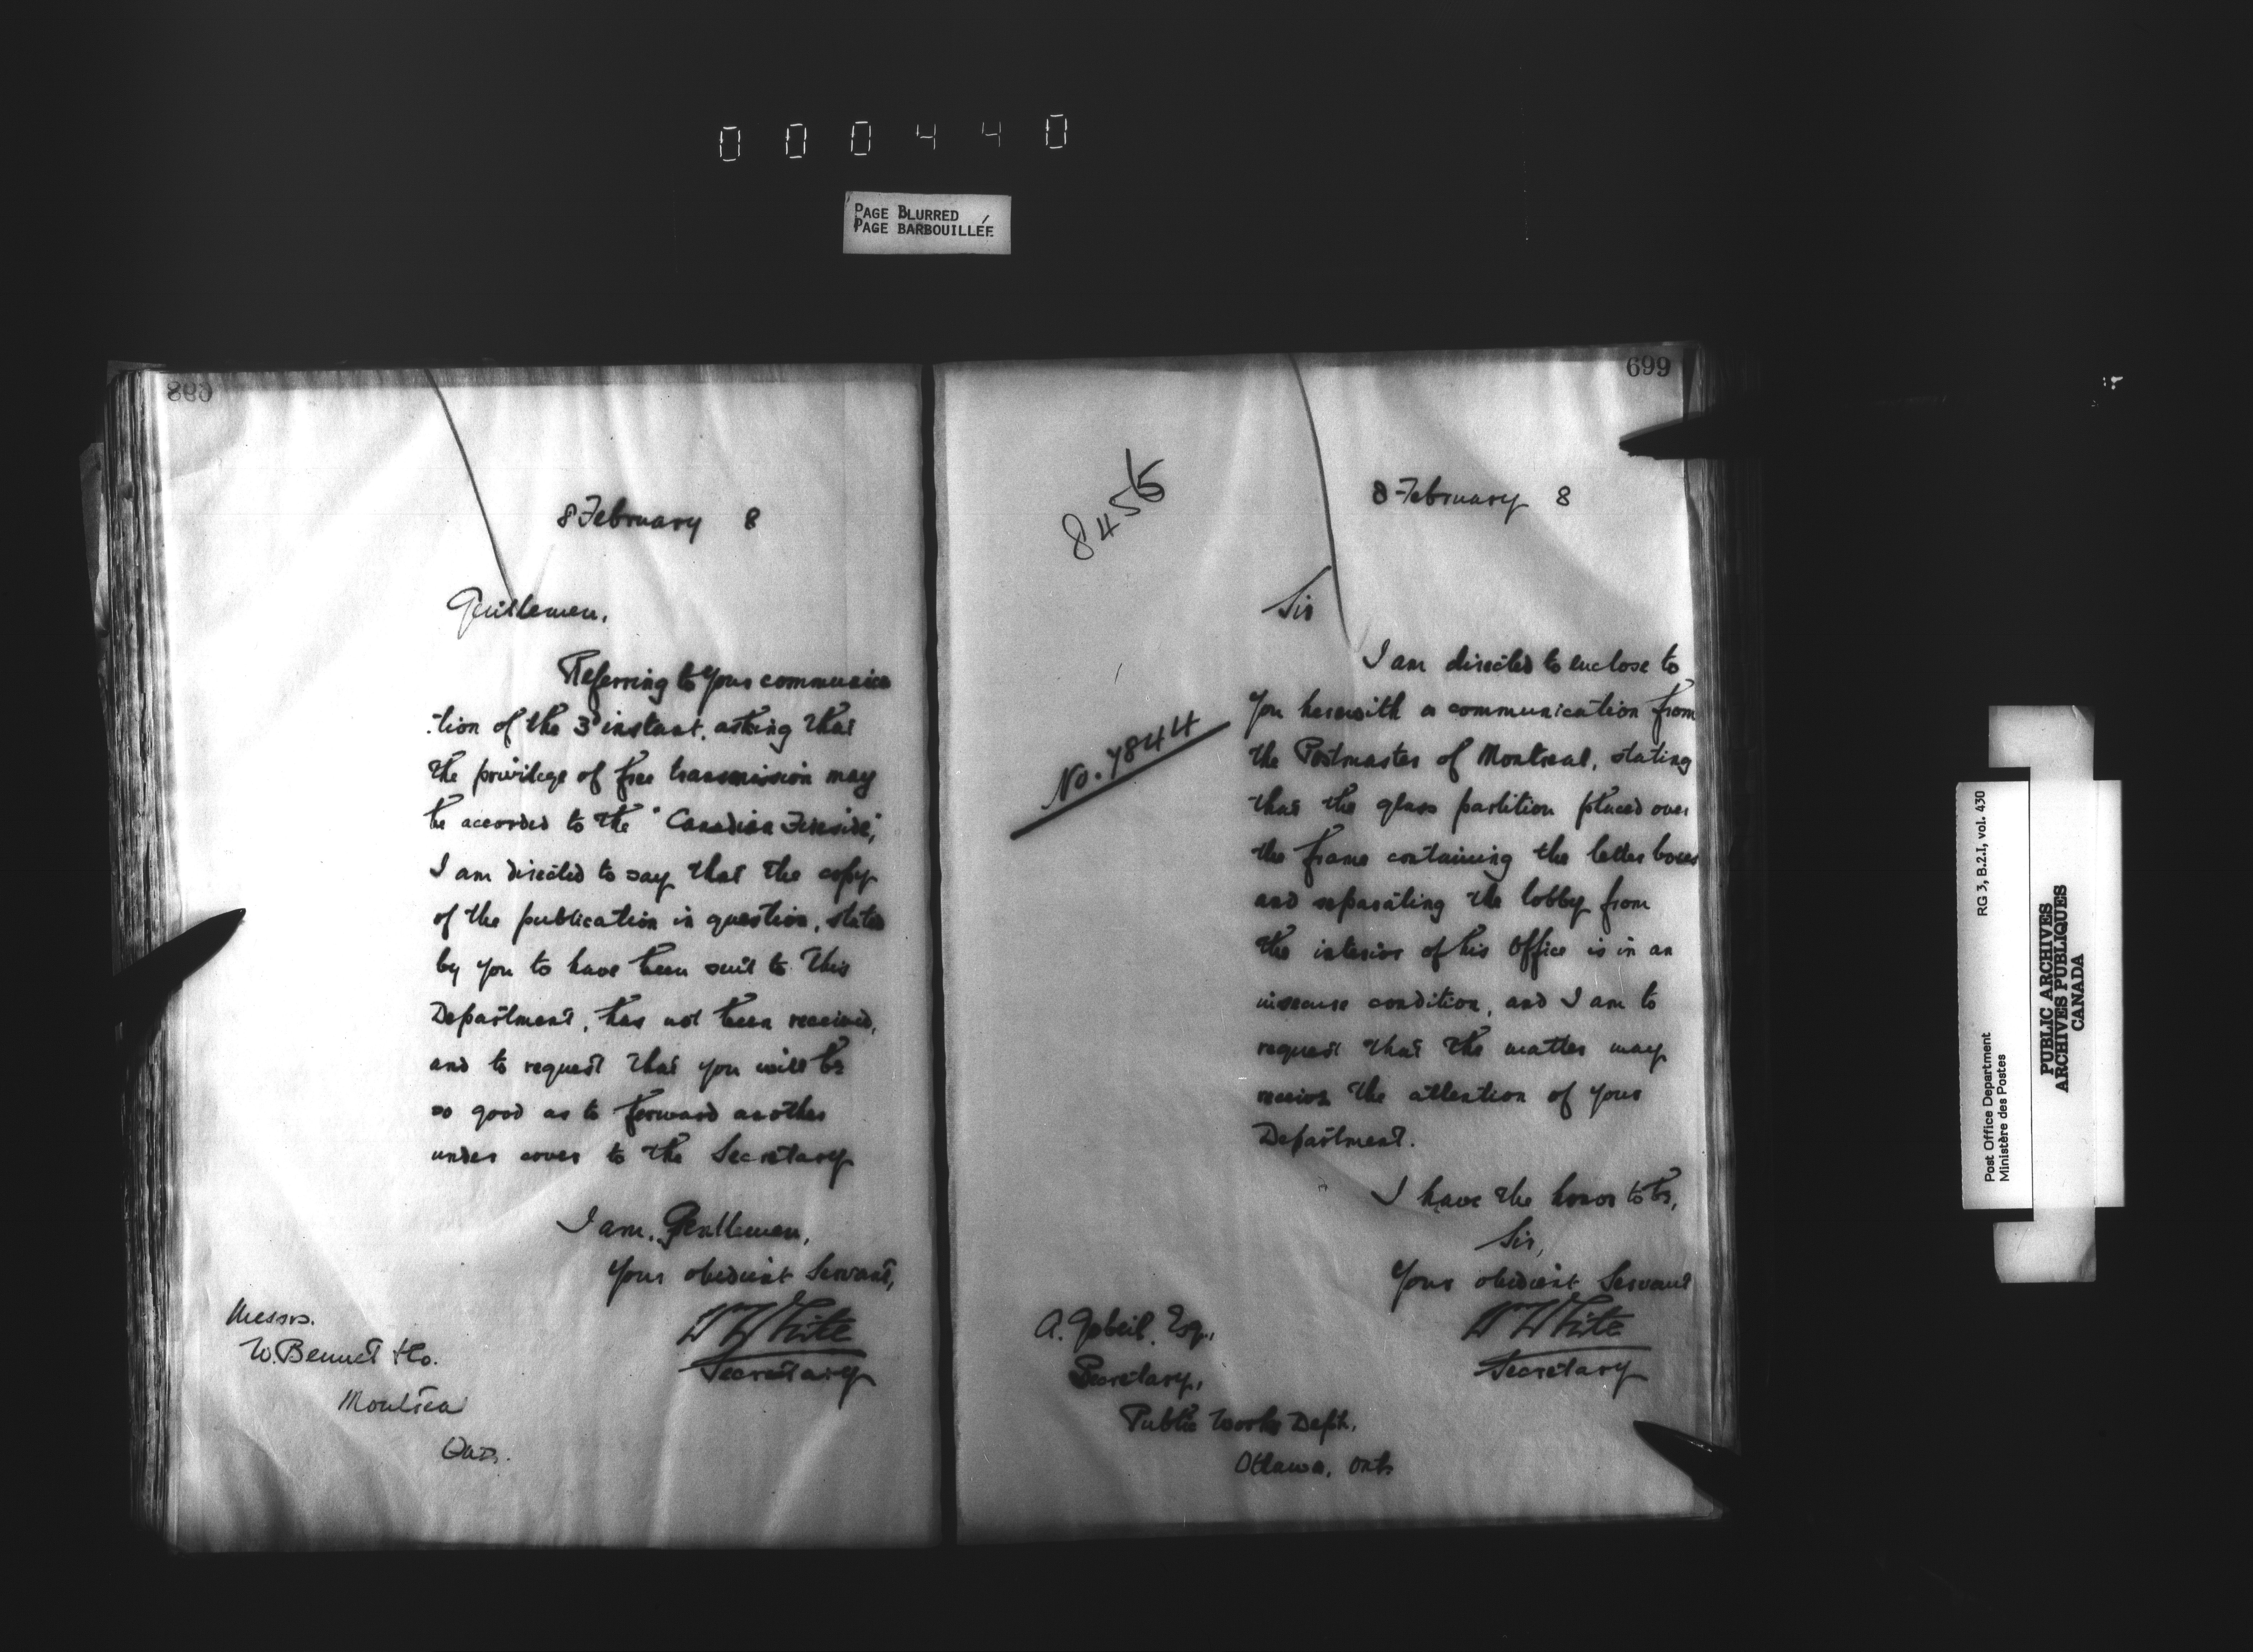 000440
PAGE BLURRED
PAGE BARBOUILLÉE
8 February 8
Gentlemen,
Referring to your communica
-tion of the 3d instant, asking that
the privilege of free transmission may
be accorded to the "Canadian Fireside,"
I am directed to say that the copy
of the publication in question, stated
by you to have been sent to this
Department, has not been received,
and to request that you will be
so good as to forward another
under cover to the Secretary
I am, Gentlemen,
Your obedient Servant,
W White
Secretary
Messrs.
W. Bennet & Co.
Montreal
Que.
699
8455
8 February 8
Sir
No. 7844
I am directed to enclose to
you herewith a communication from
the Postmaster of Montreal, stating
that the glass partition placed over
the frame containing the letter boxes
and separating the lobby from
the interior of his Office is in an
insecure condition, and I am to
request that the matter may
receive the attention of your
Department.
I have the honor to be,
Sir,
Your obedient Servant
W White
Secretary
A. Gobeil, Esq.,
Secretary,
Public Works Dept.,
Ottawa, Ont.
Post Office Department
Ministère des Postes
RG 3, B.2.I, vol. 430
PUBLIC ARCHIVES
ARCHIVES PUBLIQUES
CANADA